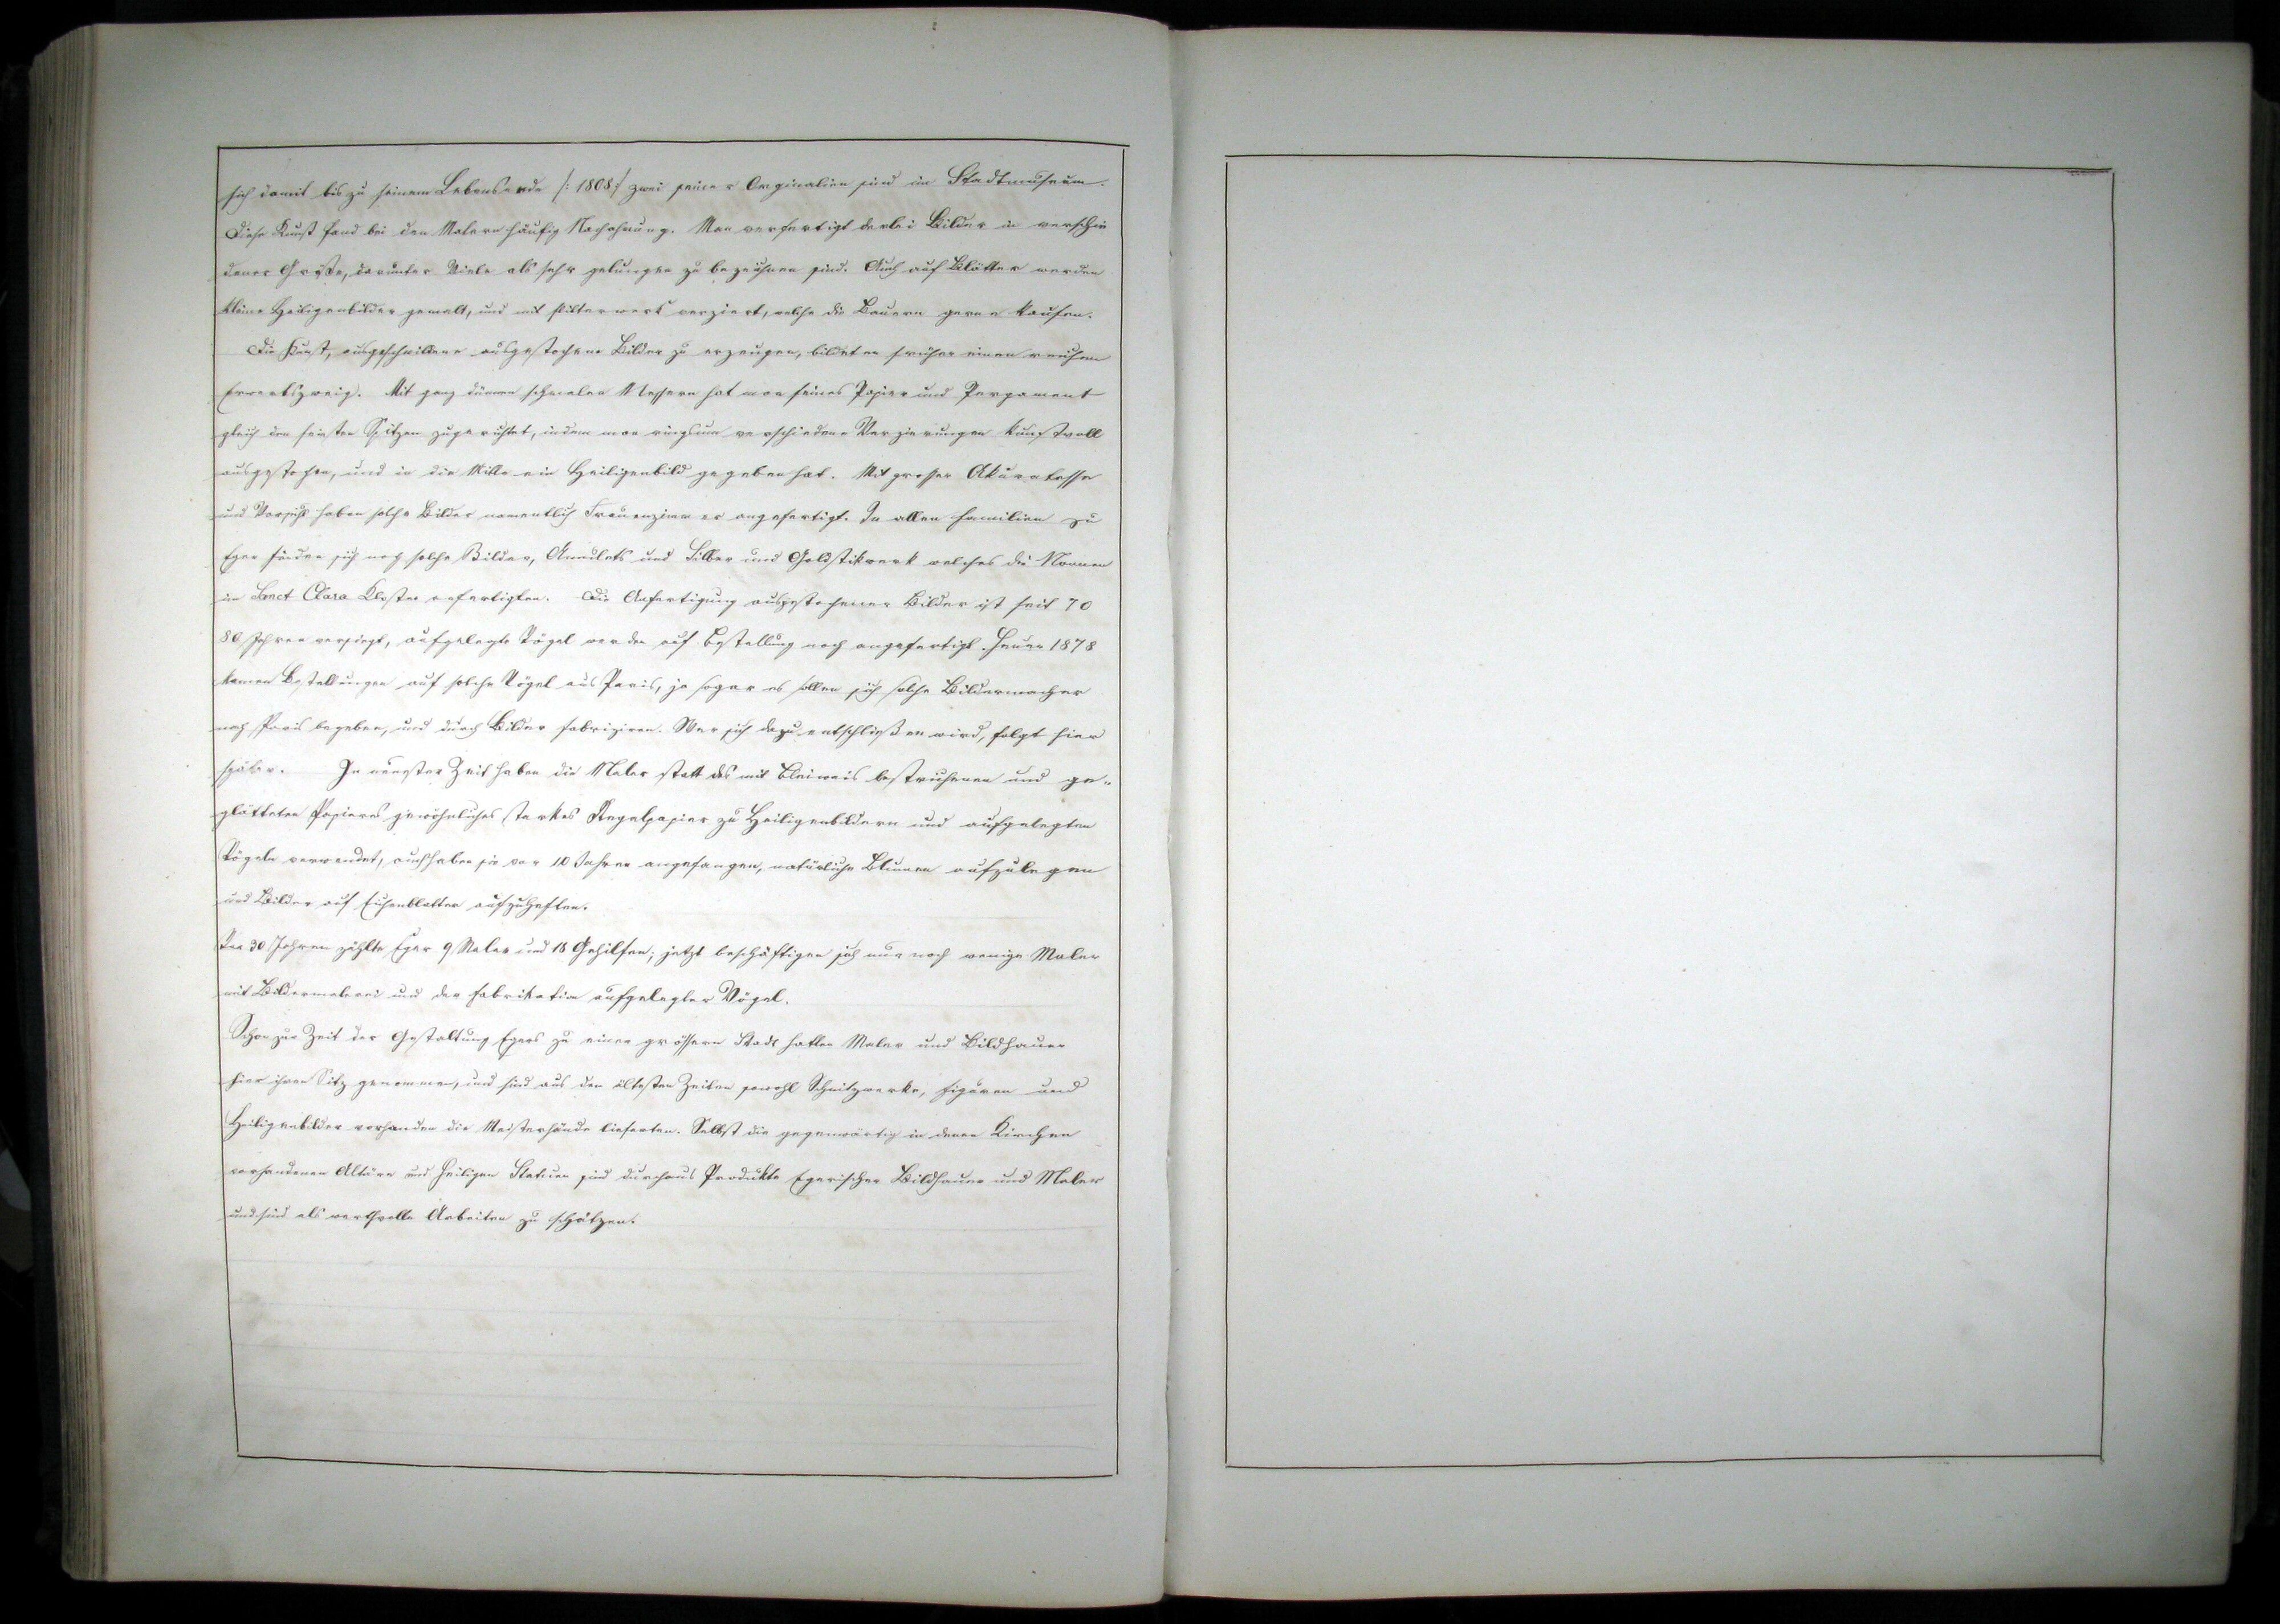 sich damit bis zu seinem Lebensende /: 1808 :/ zwei seiner Orginalien sind im Stadtmuseum.
Diese Kunst fand bei den Malern häufig Nachahmung. Man verfertigt derlei Bilder in verschie
dener Größe, darunter Viele als sehr gelungen zu bezeichnen sind. Auch auf Blätter werden
kleine Heiligenbilder gemalt, und mit flitterwerk verziert, welche die Bauern gerne kaufen.
Die Kunst, ausgeschnittene ausgestochene Bilder zu erzeugen, bildeten früher einen reichen
Erwerbszweig. Mit ganz dünnen schmalen Messern hat man feines Papier und Pergament
gleich den feinsten Spitzen zugerichtet, indem man ringsum verschiedene Verzierungen kunstvoll
ausgestochen, und in die Mitte ein Heiligenbild gegeben hat. Mit grosser Akuratesse
und Vorsicht haben solche Bilder namentlich Frauenzimmer angefertigt. In allen Familien zu
Eger finden sich noch solche Bilder, Amulets und Silber und Goldstikwerk welches die Nonnen
im Sanct Clara Kloster anfertigten. Die Anfertigung ausgestochener Bilder ist seit 70
80 Jahren versiegt, aufgelegte Vögel werden auf Bestellung noch angefertigt. Heuer 1878
kamen Bestellungen auf solche Vögel aus Paris, ja sogar es sollen sich solche Bildermacher
nach Paris begeben, und durch Bilder fabriziren. Wer sich dazu entschließen wird, folgt hier
später. In neuester Zeit haben die Maler statt des mit Bleiweis bestrichenen und ge-
glätteten Papieres gewöhnliches starkes Regalpapier zu Heiligenbildern und aufgelegten
Vögeln verwendet, auch haben sie vor 10 Jahren angefangen, natürliche Blumen aufzulegen
und Bilder auf Eichenblatter aufzuheften.
Vor 30 Jahren zählte Eger 9 Maler und 18 Gehilfen; jetzt beschäftigen sich nur noch wenige Maler
mit Bildermalerei und der Fabrikation aufgelegter Vögel.
Schon zur Zeit der Gestaltung Egers zu einer grössern Stadt hatten Maler und Bildhauer
hier ihren Sitz genommen, und sind aus den ältesten Zeiten sowohl Schnitzwerke, Figuren und
Heiligenbilder vorhanden die Meisterhände lieferten. Selbst die gegenwärtig in denen Kirchen
vorhandenen Altäre und heiligen Statuen sind durchaus Produkte Egerischer Bildhauer und Maler
und sind als werthvolle Arbeiten zu schätzen.